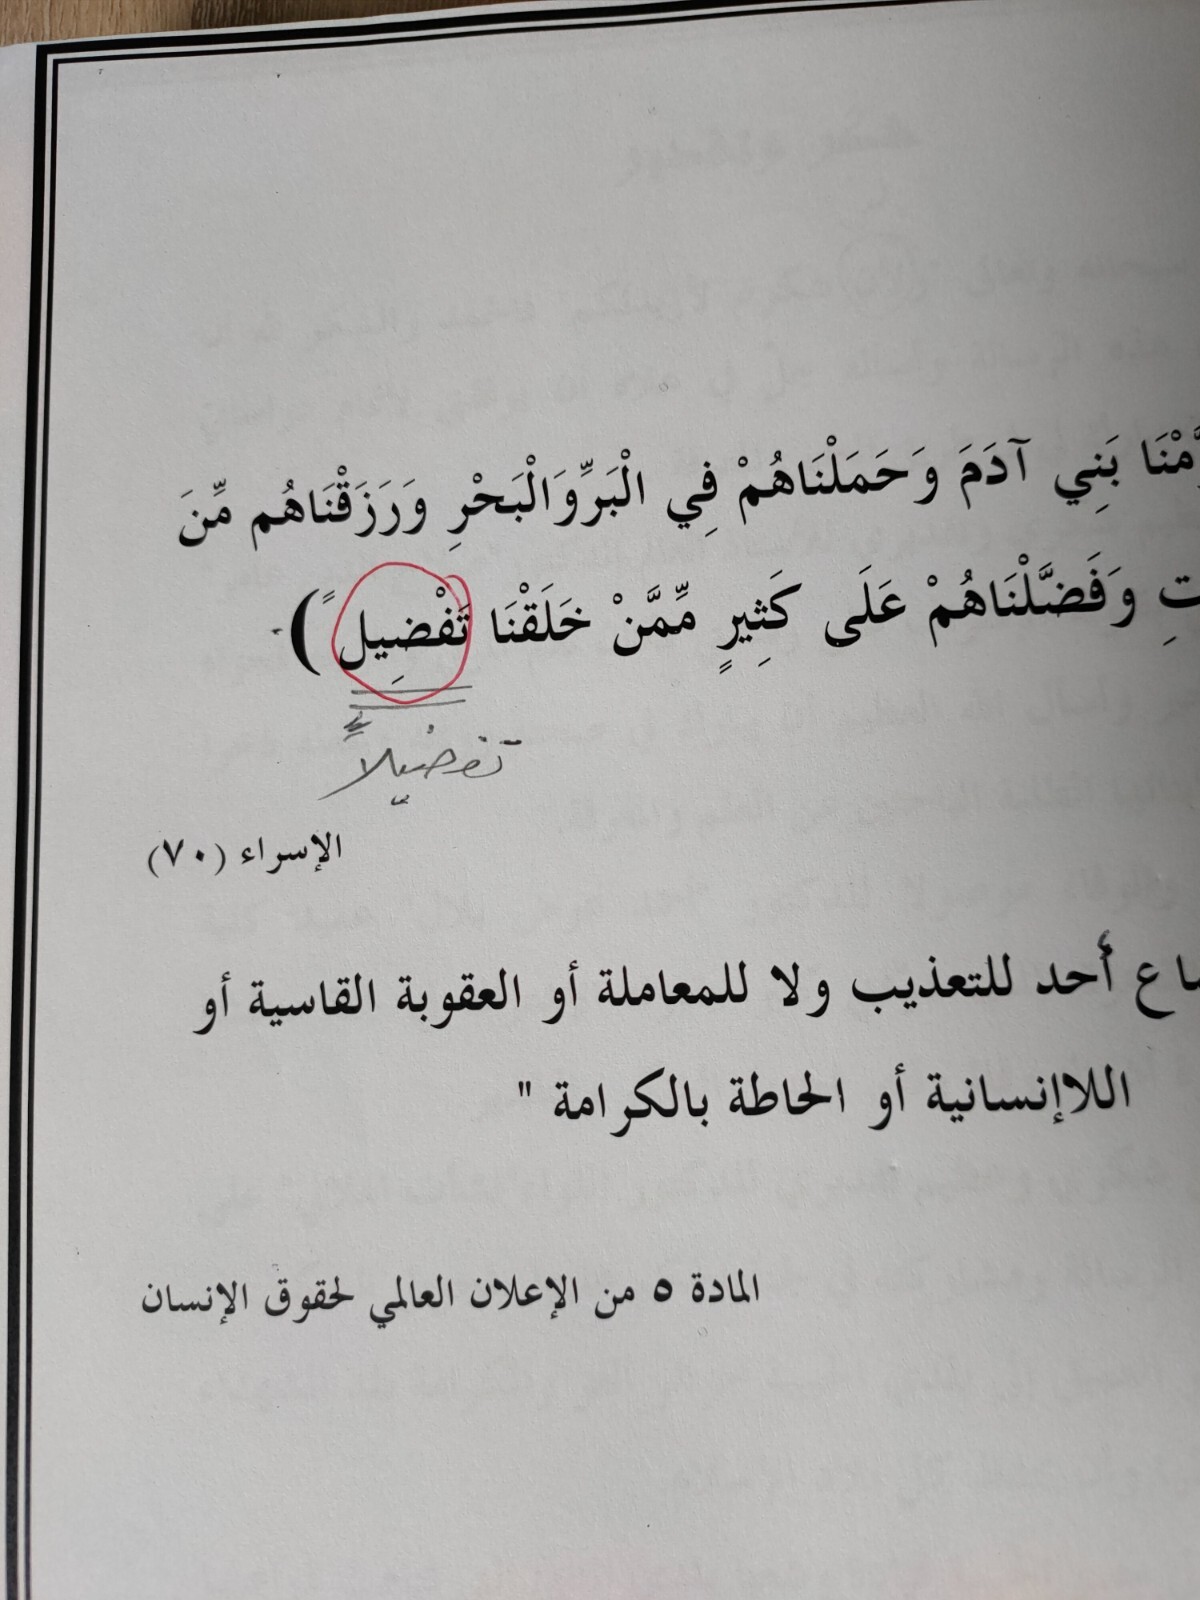 بَنِي آدَمَ وَحَمَلْنَاهُمْ فِي الْبَرِّ وَالْبَحْرِ وَرَزَقْنَاهُم مِّنَ
وَفَضَّلْنَاهُمْ عَلَى كَثِيرٍ مِّمَّنْ خَلَقْنَا تَفْضِيل ً)
تفضيلاً
الإسراء (٧٠)
أحد للتعذيب ولا للمعاملة أو العقوبة القاسية أو
اللاإنسانية أو الحاطة بالكرامة "
المادة ٥ من الإعلان العالمي لحقوق الإنسان